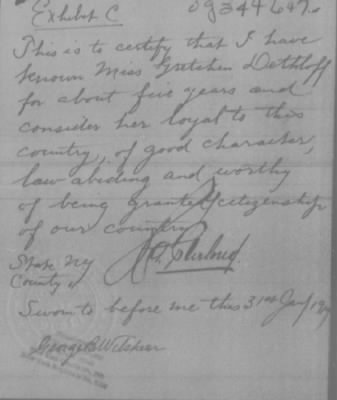 Exhibit C
This is to certify that I have
known Miss Gretchen Dethloff
for about five years and
consider her loyal to this
country, of good character,
law abiding and worthy
of being granted citizenship
of our country
State NY
County
Sworn to before me this 31st Jany
George